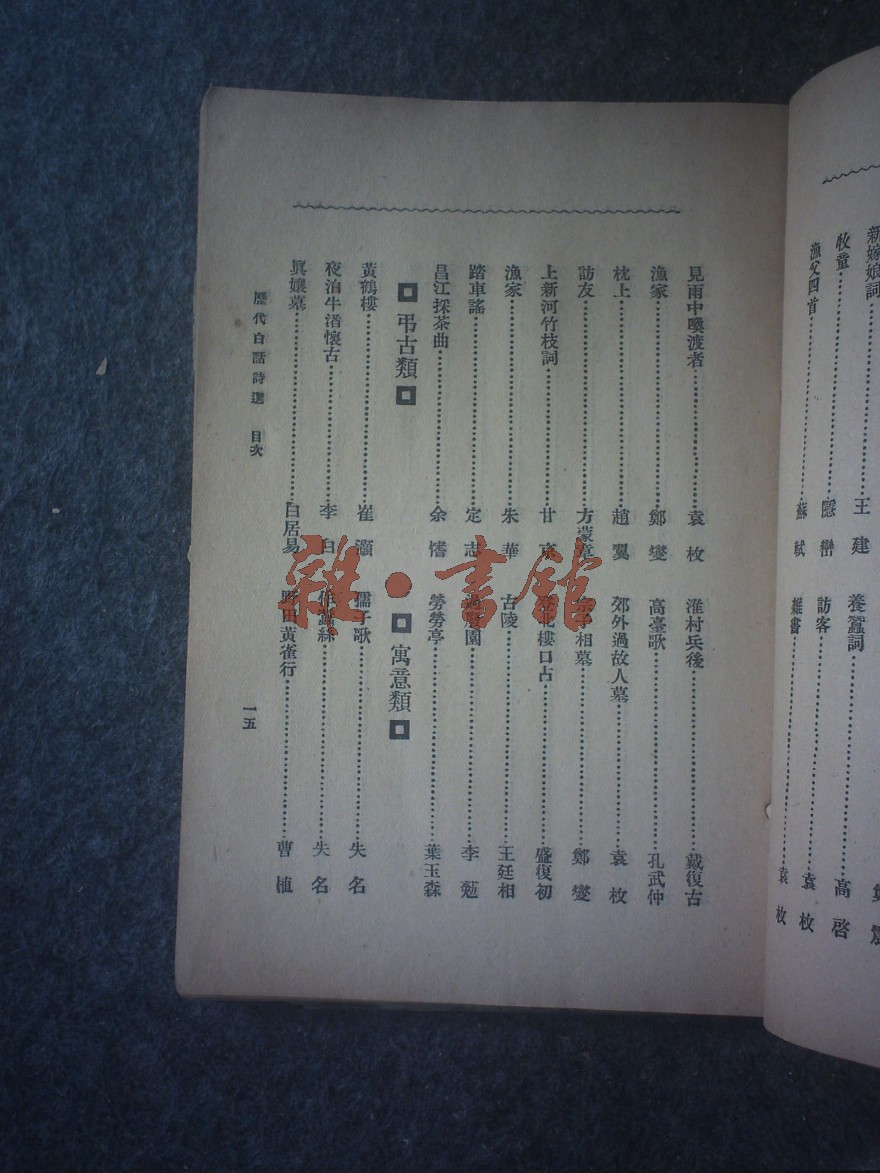 新嫁娘詞 王建
牧童 隱巒
漁父四首 蘇軾
養蠶詞 高啓
訪客 袁枚
雜書 袁枚
見雨中喚渡者 袁枚
漁家 鄭燮
枕上 趙翼
訪友 方蒙章
上新河竹枝詞 甘京
漁家 朱華
踏車謠 定志
昌江採茶曲 余
弔古類
黃鶴樓 崔灝
夜泊牛渚懷古 李白
眞孃墓 白居易
淮村兵後 戴復古
高臺歌 孔武仲
郊外過故人墓 袁枚
宗子相墓 鄭燮
北樓口占 盛復初
古陵 王廷相
過園 李
勞勞亭 葉玉森
寓意類
孺子歌 失名
作蠶絲 失名
野田黃雀行 曹植
歷代白話詩選 目次
一五
雜·書館